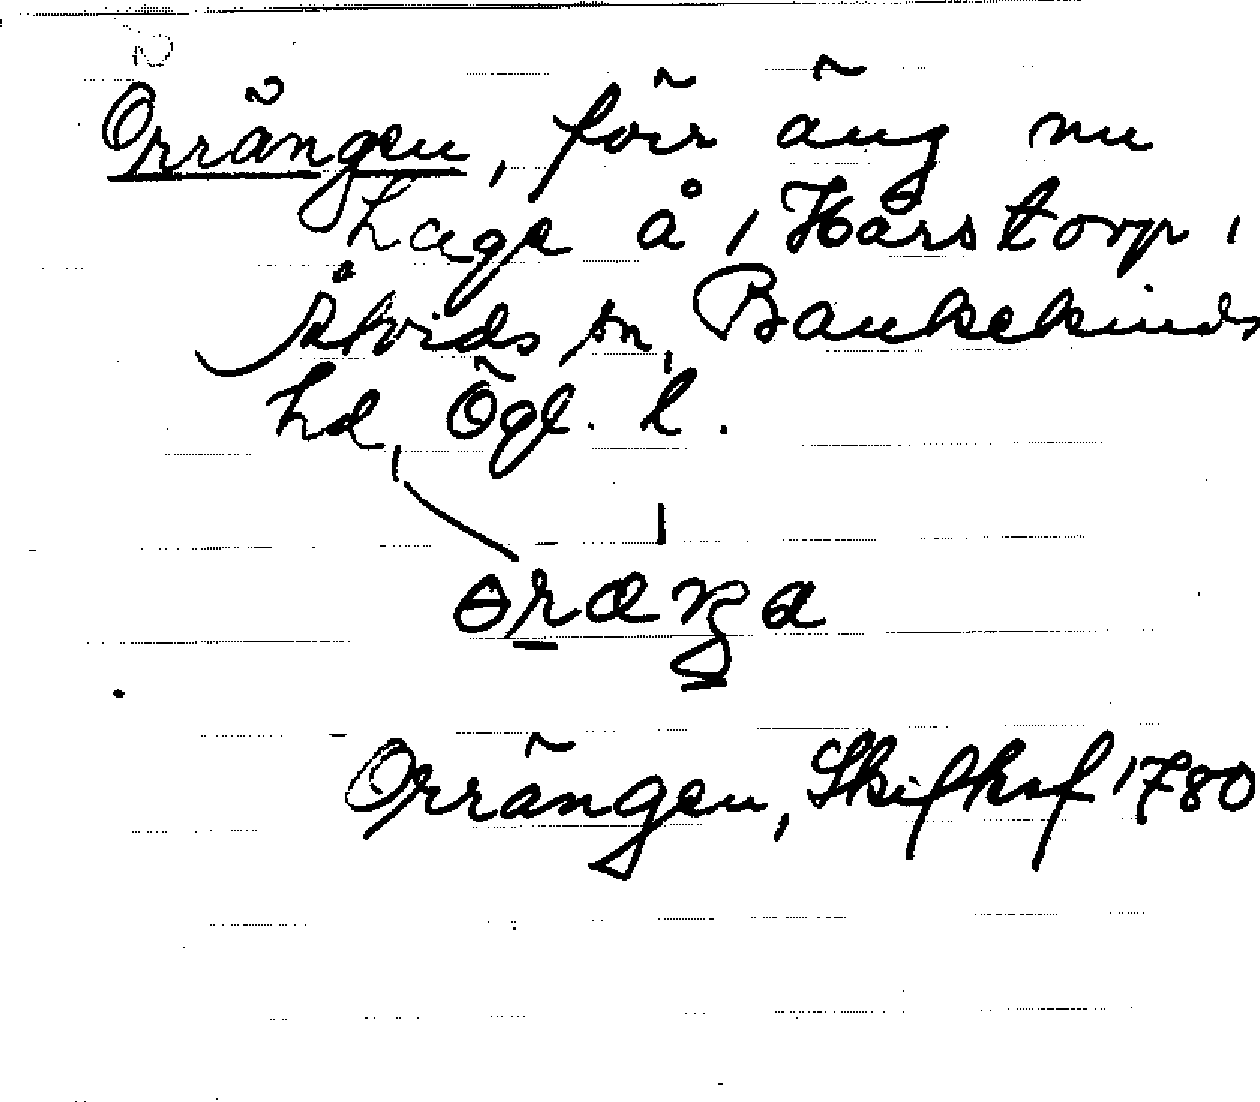 Orrängen, förr äng nu
hage å Hårstorp,
Åtvids sn, Bankekinds
hd, Ögl. l.
Orrängen, Skifksf 1780